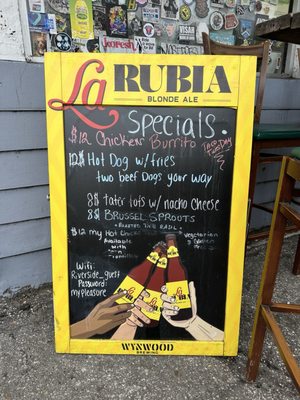 La RUBIA
BLONDE ALE
Specials.
$12 Chicken Burrito
12$ Hot Dog w/fries
two beef Dogs your way
8$ tater tots w/ nacho cheese
8$ BRUSSEL SPROUTS
$12 my Hot
Available
with
Wifi:
Riverside_guest
Password:
mypleasure
WYNWOOD
BREWING